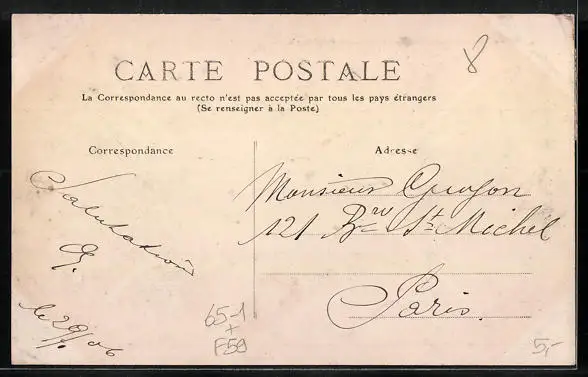 8
CARTE POSTALE
La Correspondance au recto n'est pas acceptée par tous les pays étrangers
(Se renseigner à la Poste)
Correspondance
Salutations
le 29/ 06
Adresse
Monsieur Guyon
121 Bd St Michel
Paris.
65-1
+
F59
5,-